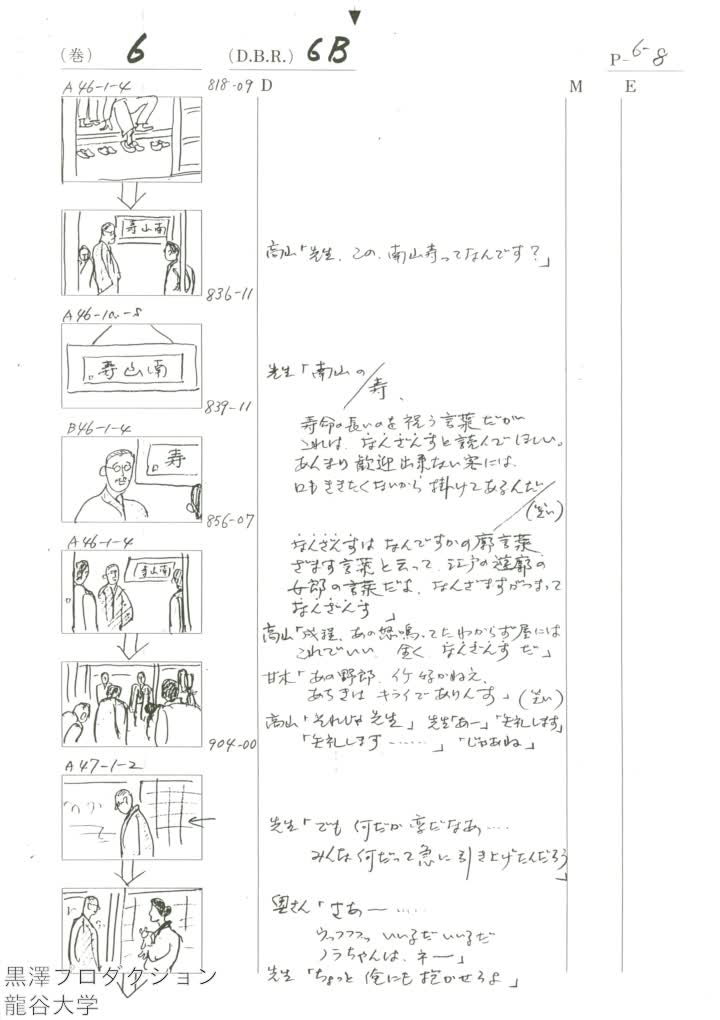 (巻) 6 (D.B.R.) 6B P-6-8
A46-1-4 818-09 D M E
南山寿
高山「先生、この、南山寿ってなんです?」
836-11
A46-10-8
南山寿
先生「南山の/寿、
839-11
寿命の長いのを祝う言葉だが
これは、なんざんすと読んでほしい。
B46-1-4
あんまり歓迎出来ない客には、
寿
口もききたくないから掛けてあるんだ/
(笑い)
856-07
なんざんすは なんですかの廓言葉
A46-1-4
ざます言葉と云って、江戸の遊廓の
南山寿
女郎の言葉だよ、なんざますがつまって
なんざんす」
高山「成程、あの怒鳴ってたわからず屋には
これでいい、全く なんざんす だ」
甘木「あの野郎、イケ好かねえ、
あちきは キライでありんす」(笑い)
高山「それじゃ先生」 先生「あー」「失礼します」
904-00
「失礼します……」 「じゃあね」
A47-1-2
先生「でも 何だか変だなあ‥‥
みんな何だって急に引き上げたんだろう」
奥さん「さあー……
ウッフフフッ いいるだ いいるだ
ノラちゃんは、ネー」
先生「ちょっと 俺にも抱かせろよ」
黒澤プロダクション
龍谷大学